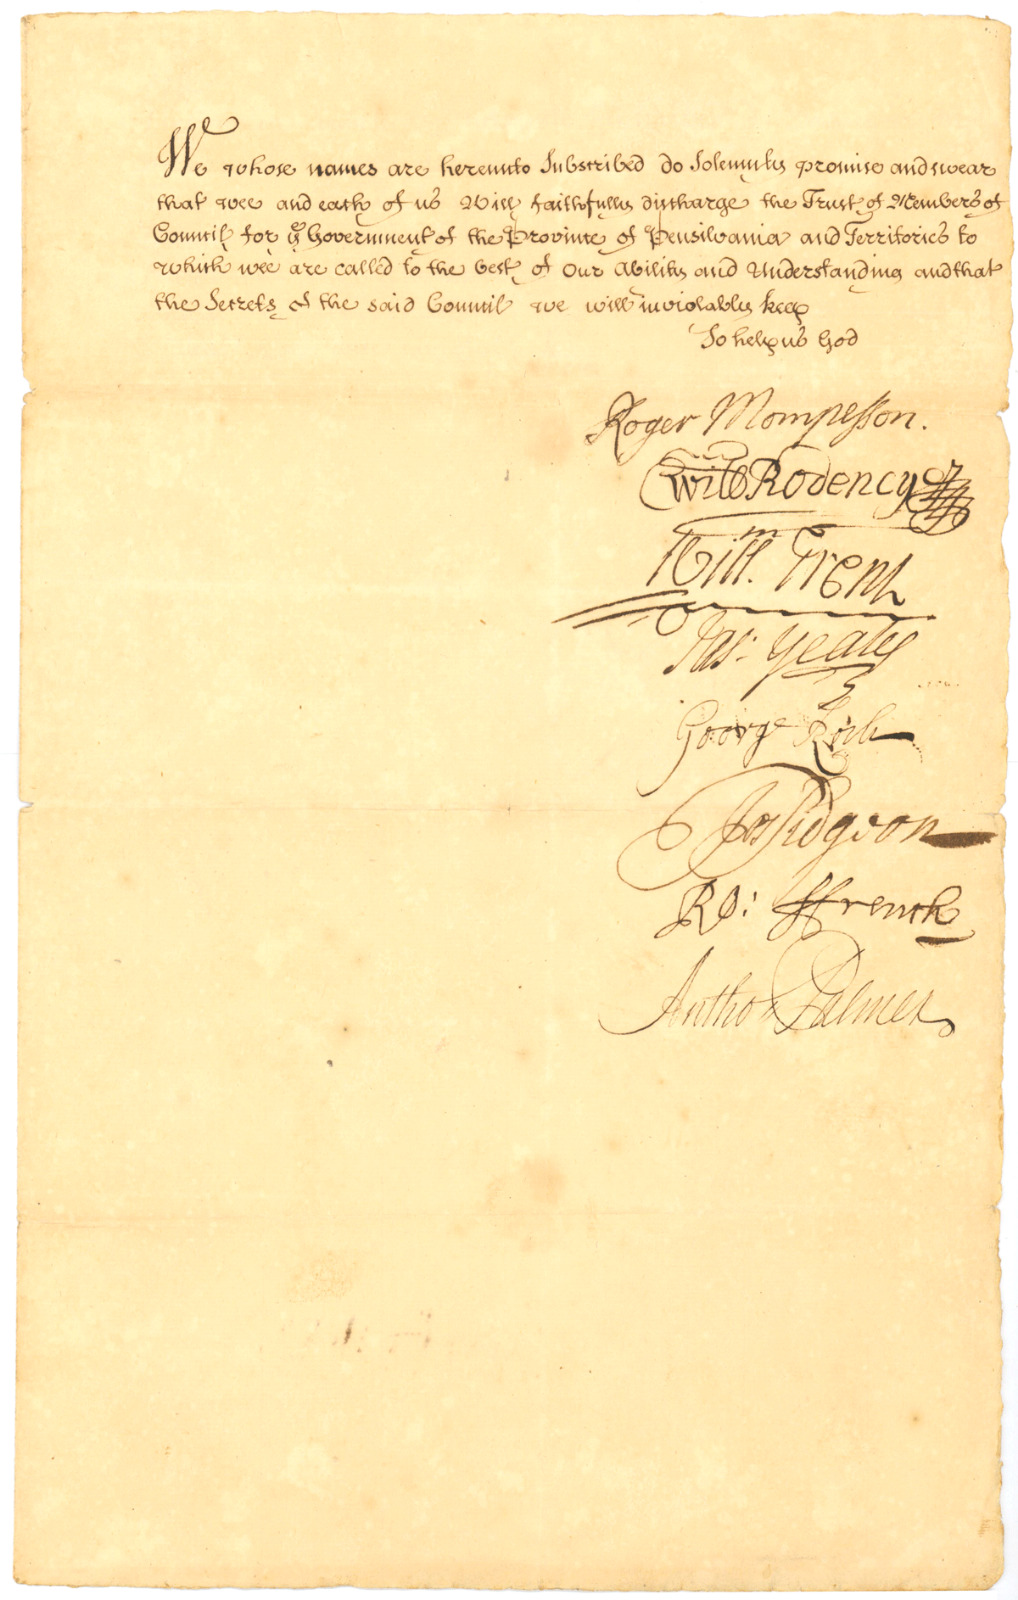 We whose names are hereunto Subscribed do Solemnly promise and swear
that wee and each of us Will faithfully discharge the Trust of Members of
Council for ye Government of the Province of Pensilvania and Territories to
which wee are called to the best of Our Ability and Understanding and that
the Secrets of the said Council we will inviolably keep
So help us God
Roger Mompesson.
Will Rodeney
Willm. Trent
Jas: Yeates
George
Jos Pidgeon
Ro: ffrench
Antho Palmer